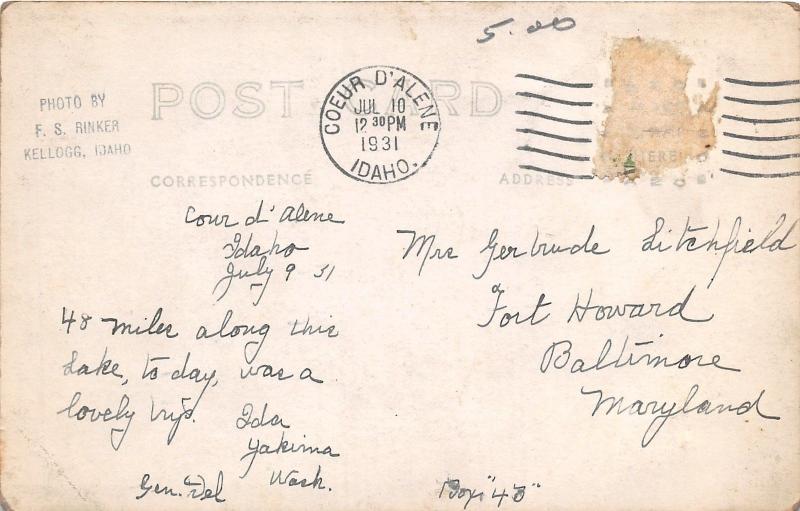 5.00
PHOTO BY
F. S. RINKER
KELLOGG, IDAHO
POST CARD
COEUR D'ALENE
JUL 10
12 30 PM
1931
IDAHO.
CORRESPONDENCE
ADDRESS
HERE
Cour d'Alene
Idaho
July 9 31
48 miles along this
Lake, to-day, was a
lovely trip.
Ida
Yakima
Wash.
Gen. Del
Mrs Gertrude Litchfield
Fort Howard
Baltimore
Maryland
Box "43"